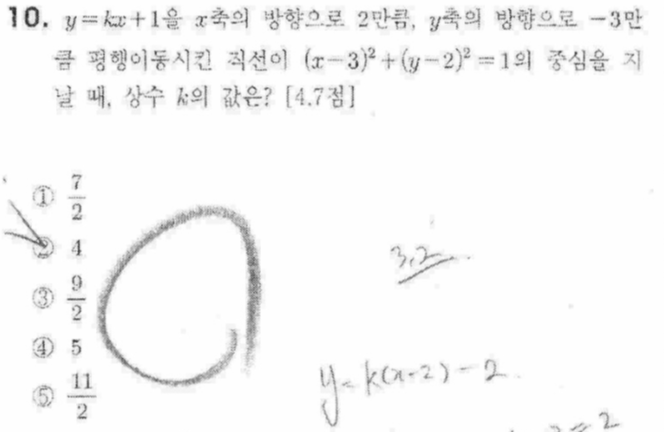 10. y=kx+1을 x축의 방향으로 2만큼, y축의 방향으로 -3만
큼 평행이동시킨 직선이 (x-3)²+(y-2)²=1의 중심을 지
날 때, 상수 k의 값은? [4.7점]
① 7/2
② 4
③ 9/2
④ 5
⑤ 11/2
3,2
y=k(x-2)-2